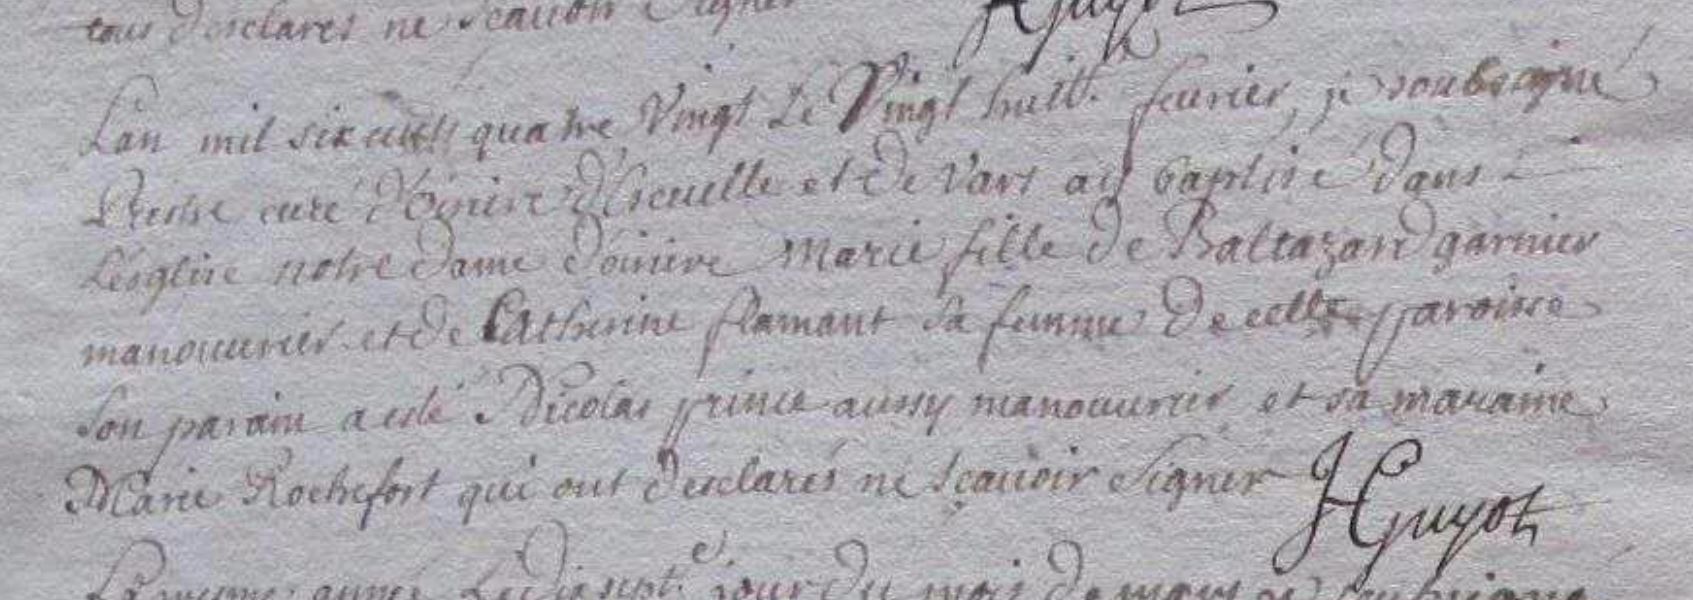 tous desclares ne scauoir Signer HGuyot
Lan mil six cents quatre Vingt Le Vingt huitt. feurier, je soubsigné
Prestre curé d'Oiriere d'Escuelle et de Vars ay baptisé dans
L'esglise notre dame d'oiriere Marie fille de Baltazard garnier
manouurier et de Catherine flamant sa femme de cette paroisse
son parain a esté Nicolas prince aussy manouurier et sa maraine
Marie Rochefort qui ont desclarés ne scauoir Signer HGuyot
La mesme année Le dix sept.e jour du mois de mars je soubsigné